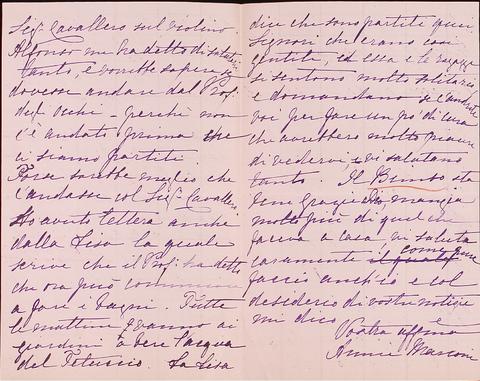 Sigr Cavallero sul violino.
Alfonso me ha detto di salutarti
tanto, e vorrebbe sapere se
dovesse andare dal Prof.
degl' occhi - perchè non
c'è andato prima che
ci siamo partiti
Forse sarebbe meglio che
l'andasse col Sigr Cavallero.
Ho avuto lettera anche
dalla Lisa la quale
scrive che il Prof. ha detto
che ora può
a fare i bagni. Tutte
le mattine vanno ai
giardini a bere l'acqua
del Tetuccio. La Lisa
dice che sono partite quei
Signori che erano così
gentili, ed essa e le ragazze
si sentono molto solitarie
e domandano se l'andate
voi per fare un po' di cura
che avrebbero molto piacere
di vedervi, e vi salutano
tanto. Il Bimbo sta
bene grazie Dio, mangia
molto più di quel che
faceva a casa, vi saluta
caramente come pure
faccio anch'io e col
desiderio di vostre notizie
mi dico
Vostra affma
Annie Marconi